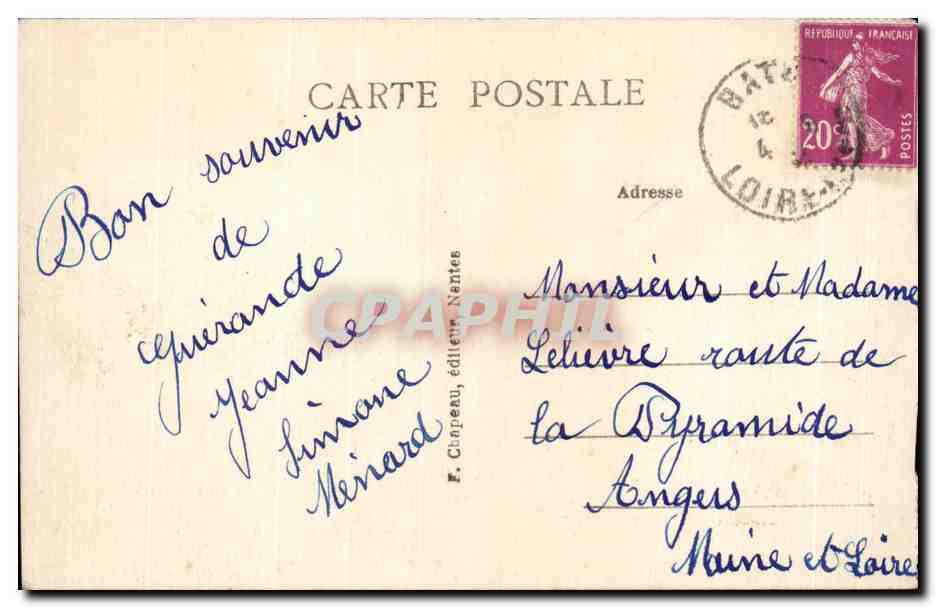 CARTE POSTALE
RÉPUBLIQUE FRANÇAISE
20c
POSTES
18
4
LOIRE
Adresse
Bon souvenir
de
Guérande
Jeanne
Simone
Ménard
F. Chapeau, éditeur, Nantes
CPAPHIL
Monsieur et Madame
Lelièvre route de
la Pyramide
Angers
Maine et Loire